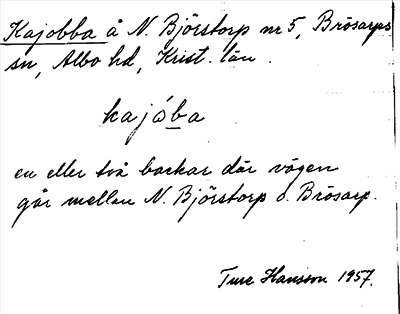 Kajobba å N. Björstorp nr 5, Brösarps
sn, Albo hd, Krist. län.
kajóba
en eller två backar där vägen
går mellan N. Björstorp o. Brösarp.
Ture Hansson 1957.